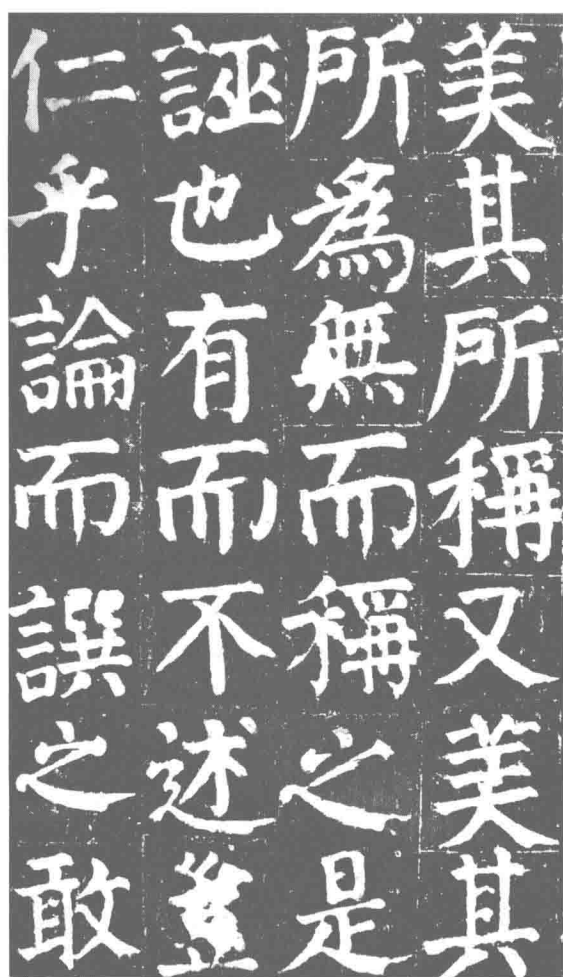 美其所稱又美其
所為無而稱之是
誣也有而不述豈
仁乎論而譔之敢